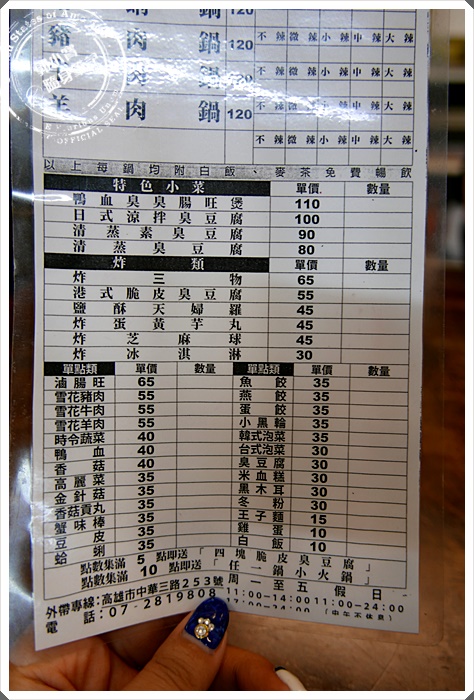 鍋 120 不辣 微辣 小辣 中辣 大辣
豬肉鍋 120 不辣 微辣 小辣 中辣 大辣
牛肉鍋 120 不辣 微辣 小辣 中辣 大辣
羊肉鍋 120 不辣 微辣 小辣 中辣 大辣
不辣 微辣 小辣 中辣 大辣
以上每鍋均附白飯、麥茶免費暢飲
特色小菜 單價 數量
鴨血臭臭腸旺煲 110
日式涼拌臭豆腐 100
清蒸素臭豆腐 90
清蒸臭豆腐 80
炸類 單價 數量
炸三物 65
港式脆皮臭豆腐 55
鹽酥天婦羅 45
炸蛋黃芋丸 45
炸芝麻球 45
炸冰淇淋 30
單點類 單價 數量 單點類 單價 數量
滷腸旺 65 魚餃 35
雪花豬肉 55 燕餃 35
雪花牛肉 55 蛋餃 35
雪花羊肉 55 小黑輪 35
時令蔬菜 40 韓式泡菜 35
鴨血 40 台式泡菜 30
香菇 40 臭豆腐 30
高麗菜 35 米血糕 30
金針菇 35 黑木耳 30
香菇貢丸 35 冬粉 30
蟹味棒 35 王子麵 15
豆皮 35 雞蛋 10
蛤蜊 35 白飯 10
點數集滿 5 點即送「四塊脆皮臭豆腐」
點數集滿 10 點即送「任一鍋小火鍋」
外帶專線:高雄市中華三路253號 周一至五 假日
電話:07-2819808 11:00-14:00 11:00-24:00
17:00-24:00 (中午不休息)